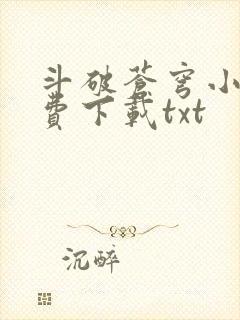 斗破蒼穹小
費下載txt
沉醉